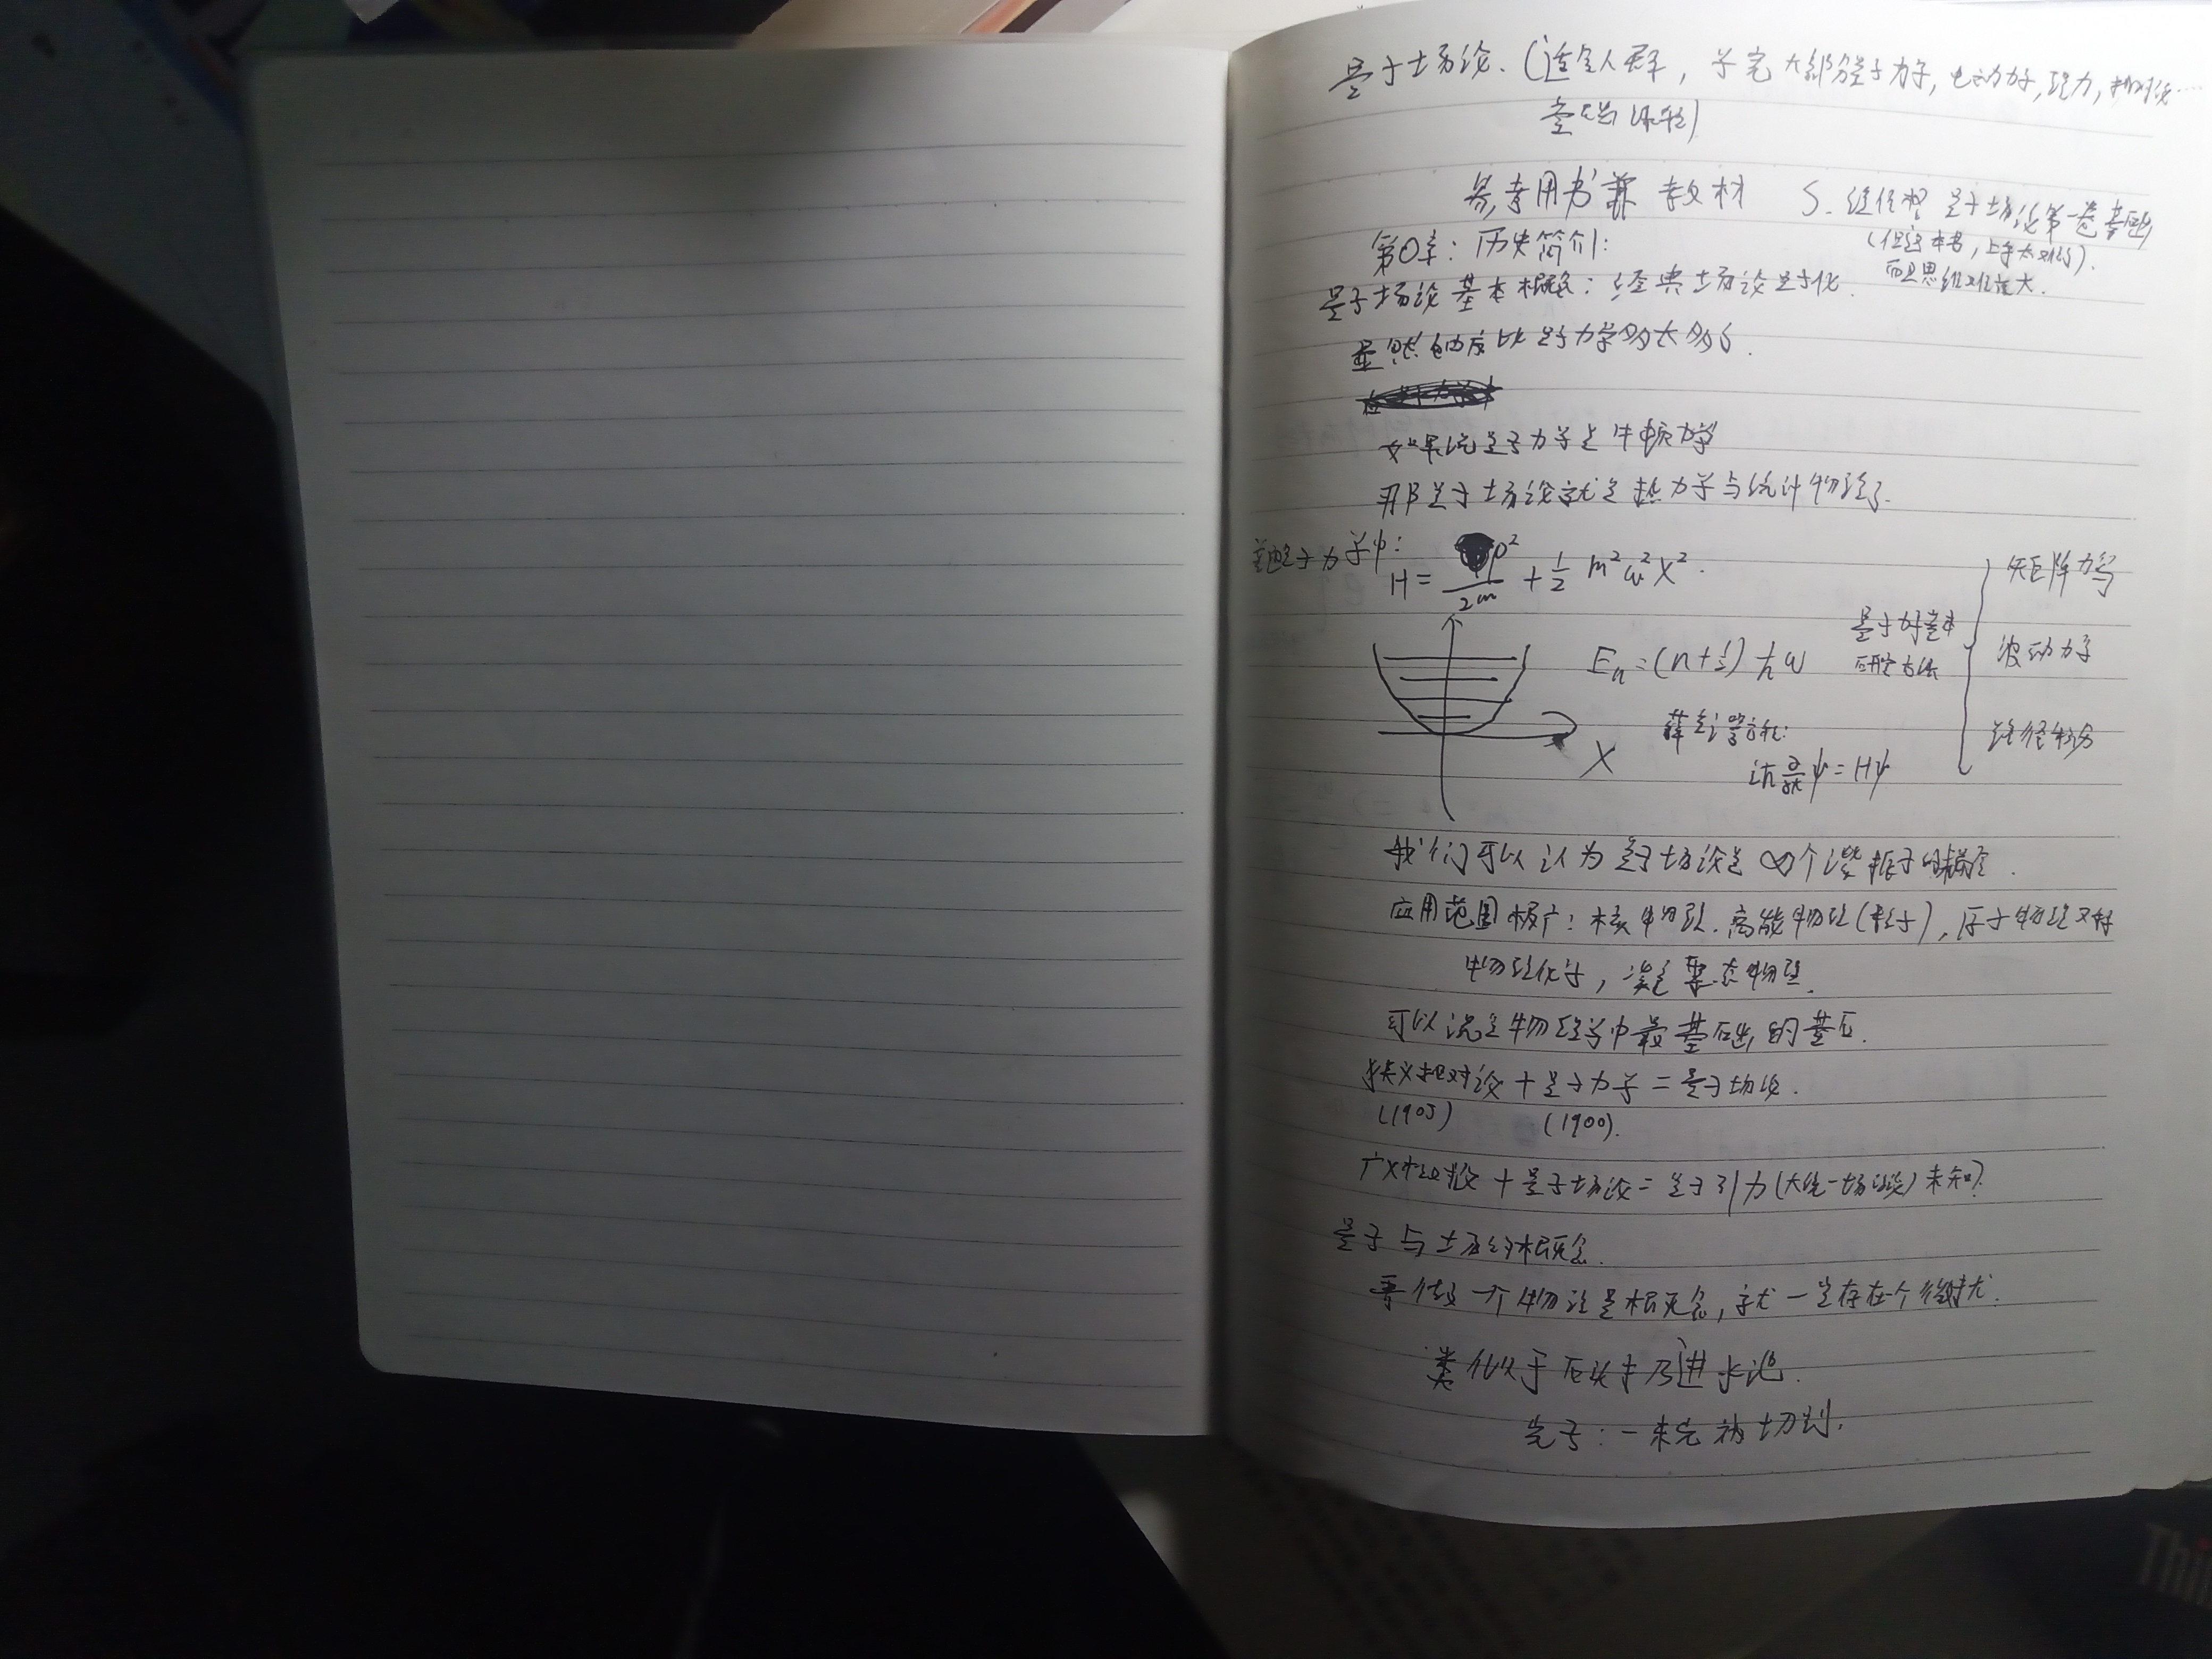 量子场论.(适合人群,学完大部分量子力学,电动力学,理力,相对论…
基础课程)
参考用书兼教材 S.温伯格 量子场论第一卷基础
(但这本书,上手太难了).
而且思维难度大.
第0章:历史简介:
量子场论基本概念:经典场论量子化.
显然 比量子力学多太多了.
如果说量子力学是牛顿力学
那量子场论就是热力学与统计物理了.
量子力学中:
H = p²/2m + ½ m²ω²x².
矩阵力学
量子力学基本
研究方法
波动力学
Eₙ=(n+½)ℏω
薛定谔方程:
路径积分
X
iℏ ∂/∂t ψ = Hψ
我们可以认为量子场论是∞个谐振子的
应用范围极广:核物理.高能物理(粒子),原子物理
物理化学,凝聚态物理.
可以说是物理学中最基础的基石.
狭义相对论+量子力学=量子场论.
(1905) (1900).
广义相对论+量子场论=量子引力(大统一场论)未知?
量子与场的概念.
一个物理量概念,就一定存在个微扰.
类似于石头扔进水池.
光子:一束光被切割.
Thi